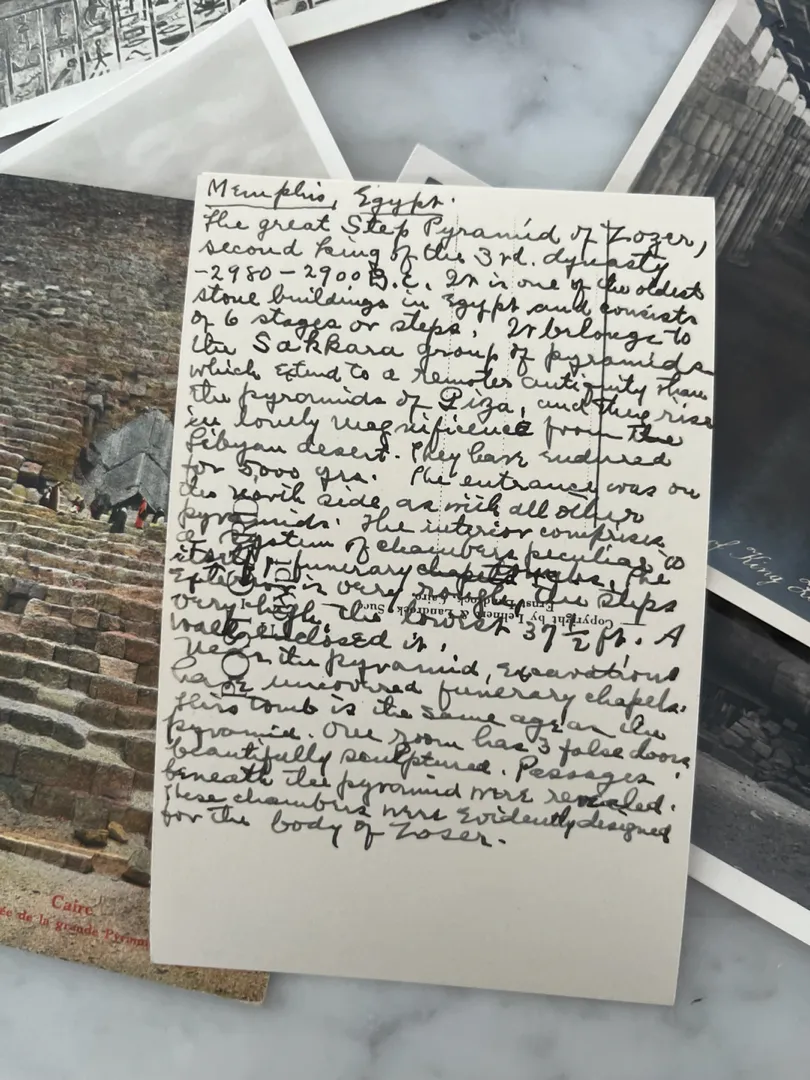 Memphis, Egypt.
The great Step Pyramid of Zozer,
second king of the 3rd. dynasty
-2980-2900 B.C. It is one of the oldest
stone buildings in Egypt and consists
of 6 stages or steps. It belongs to
the Sakkara group of pyramids
which extend to a remoter antiquity than
the pyramids of Giza, and they rise
in lonely magnificence from the
Libyan desert. They have endured
for 5,000 yrs. The entrance was on
the north side as with all other
pyramids. The interior comprises
a system of chambers peculiar to
itself, funerary chapels. The
exterior is very rough, the steps
very high, the lowest 37 1/2 ft. A
wall enclosed it.
Near the pyramid, excavations
have uncovered funerary chapels.
This tomb is the same age as the
pyramid. One room has 3 false doors,
beautifully sculptured. Passages
beneath the pyramid were revealed.
These chambers were evidently designed
for the body of Zoser.
Copyright by Lehnert & Landrock Succ.
Ernst Landrock, Cairo
Caire
ée de la grande Pyram
of King